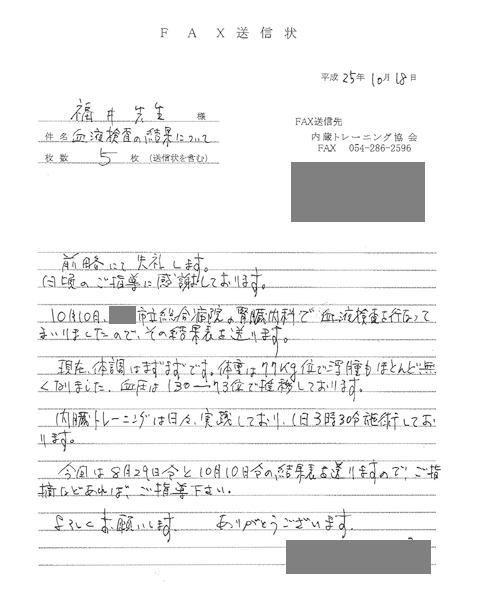 FAX送信状
平成 25年 10月 18日
福井 先生 様
件名 血液検査の結果について
枚数 5 枚 (送信状を含む)
FAX送信先
内蔵トレーニング協会
FAX 054-286-2596
前略にて失礼します。
日頃のご指導に感謝しております。
10月10日、市立総合病院の腎臓内科で血液検査を行なって
まいりましたので、その結果表を送ります。
現在、体調はまずまずです。体重は77kg位で浮腫もほとんど無
くなりました、血圧は130→73位で推移しております。
内臓トレーニングは日々、実践しており、1日3時30分施術してお
ります。
今回は8月29日分と10月10日分の結果表を送りますので、ご指
摘などあれば、ご指導下さい。
よろしくお願いします。 ありがとうございます。